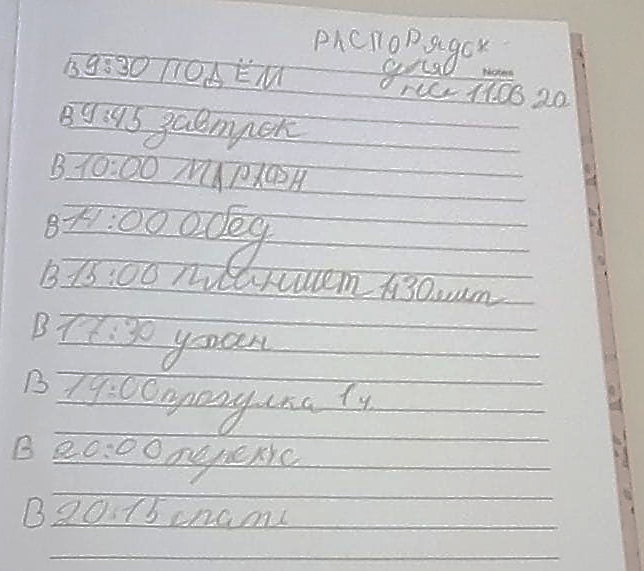 РАСПОРЯДОК
дня
Notes
11.06 20
В 9:30 ПОДЁМ
В 9:45 завтрак
В 10:00 МАРАФН
В 14:00 Обед
В 15:00 планшет 1ч30мин
В 17:30 ужен
В 19:00 прогулка 1ч
В 20:00 перекус
В 20:15 спать